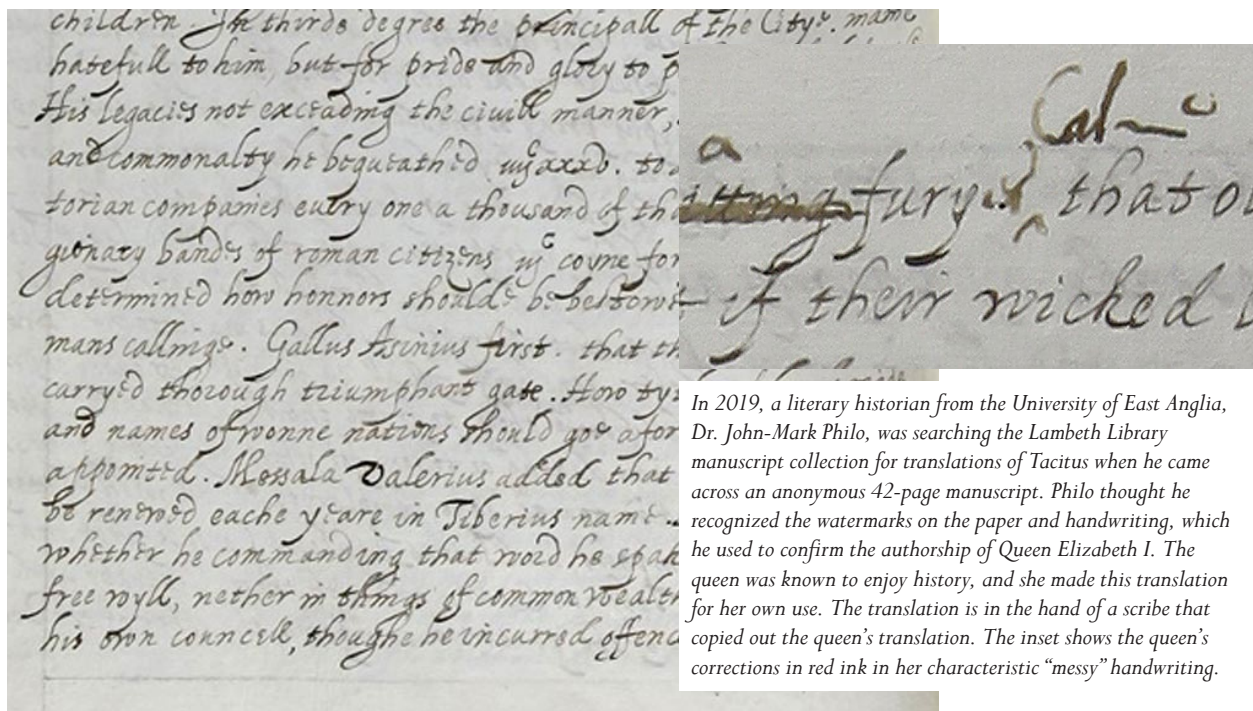 children. In thirde degree the principall of the Citye. mame
hatefull to him, but for pride and glory to p
His legacies not exceading the civill manner,
and commonalty he bequeathed to
torian companies every one a thousand of th
gionary bandes of roman citizens coyne for
determined how honnors shoulde be bestow
mans callinge. Gallus Asinius first. that th
carryed thorough triumphant gate. How ty
and names of wonne nations should goe afor
appointed. Messala Valerius added that
be renewed eache yeare in Tiberius name
whether he commanding that word he spak
free wyll, nether in things of common wealth
his own councell, thoughe he incurred offenc
a
Cal
fury that o
if their wicked
In 2019, a literary historian from the University of East Anglia,
Dr. John-Mark Philo, was searching the Lambeth Library
manuscript collection for translations of Tacitus when he came
across an anonymous 42-page manuscript. Philo thought he
recognized the watermarks on the paper and handwriting, which
he used to confirm the authorship of Queen Elizabeth I. The
queen was known to enjoy history, and she made this translation
for her own use. The translation is in the hand of a scribe that
copied out the queen's translation. The inset shows the queen's
corrections in red ink in her characteristic "messy" handwriting.